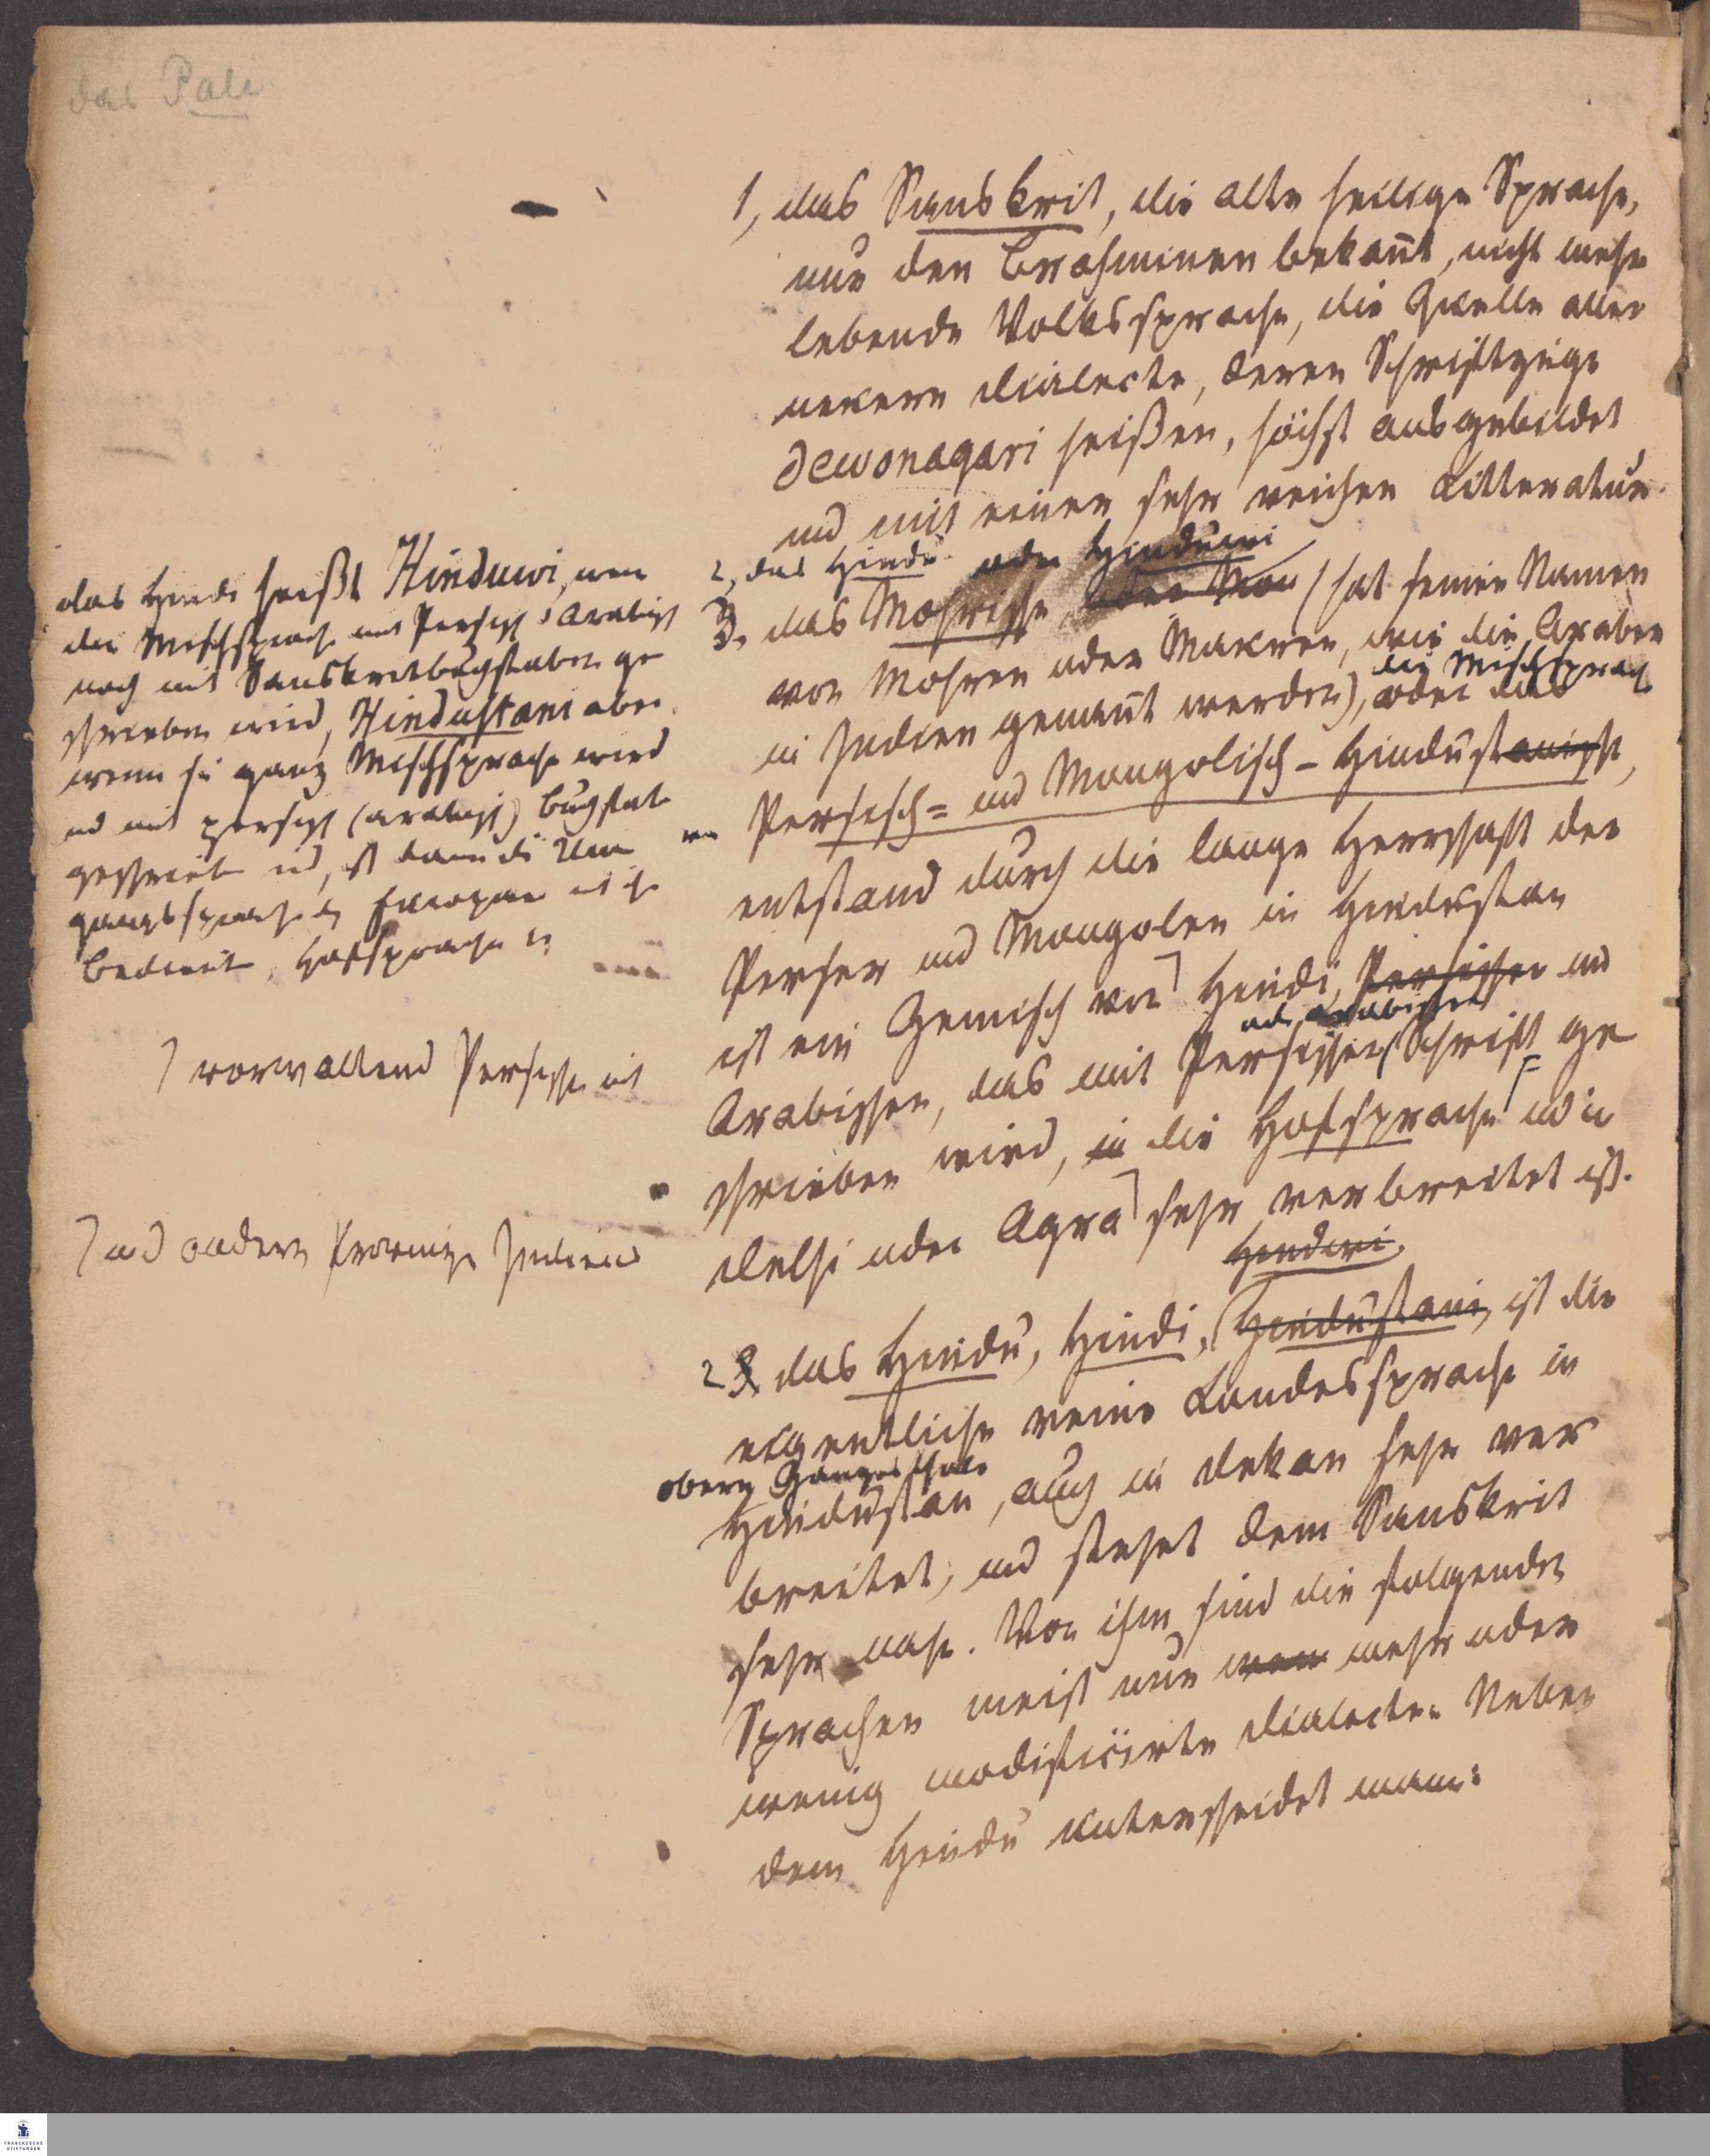 das Pali
1, das Sanskrit, die alte heilige Sprache,
nur den Brahminen bekañt, nicht mehr
lebende Volkssprache, die Quelle aller
neuern Dialecte, deren Schriftzüge
Dewonagari heißen, höchst ausgebildet
und mit einer sehr reichen Litteratur.
2, das Hindu oder Hinduwi
3. das Mohrische oder Mon (hat seinen Namen
von Mohren oder Mauren, wie die Araber
in Indien genañt werden), oder das
die Mischsprache
Persisch= und Mongolisch-Hindustanische,
entstand durch die lange Herrschaft der
Perser und Mongolen in Hindustan
ist ein Gemisch von Hindi, Persischen und
Arabischen, das mit Persischer Schrift ge
oder arabischer
schrieben wird, in die Hofsprache und in
Delhi oder Agra sehr verbreitet ist.
Hinduwi
2 3. das Hindu, Hindi, (Hindustani, ist die
eigentliche reine Landessprache in
obern Gangesthale
Hindustan, auch in Dekan sehr ver
breitet, und stehet dem Sanskrit
sehr nahe. Von ihm sind die folgenden
Sprachen meist nur mehr oder
wenig modificirte Dialecte. Neben
dem Hindu unterscheidet man:
das Hindi heißt Hinduwi, wen
die Mischsprache mit Persisch Arabisch
noch mit Sanskritbuchstaben ge
schrieben wird, Hindustani aber
wenn sie ganz Mischsprache wird
und mit persisch (arabisch) Buchstabe
geschrieben wird, ist dann die Um
gangssprache der Europäer
Bediente, Hofsprache
vorwaltend Persische mit
und andern Provinzen Indiens